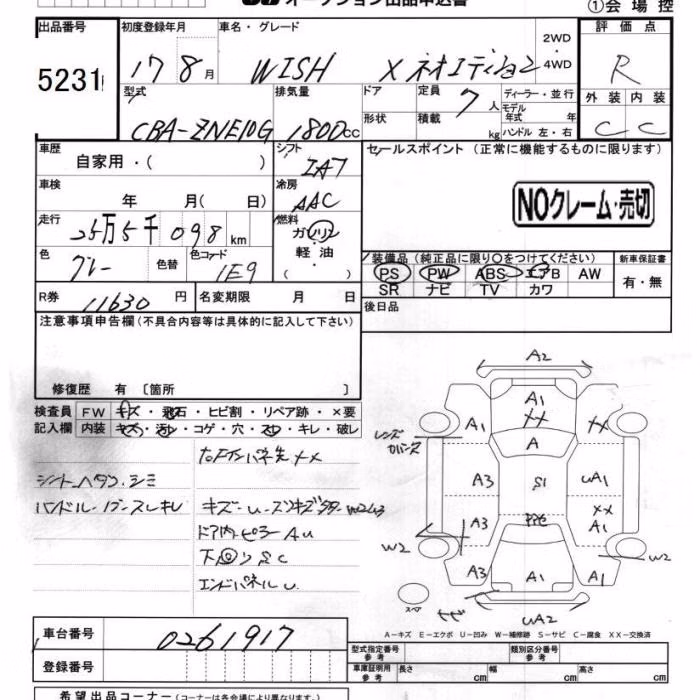 オークション出品申込書
①会場控
出品番号 初度登録年月 車名・グレード 評価点
5231 17 8月 WISH X ネオエディション 2WD・4WD R
型式 排気量 ドア 定員 7人 ディーラー・並行 外装 内装
CBA-ZNE10G 1800cc 形状 積載 kg モデル年式 年 ハンドル 左・右 C C
車歴 自家用・( ) シフト IA7 セールスポイント (正常に機能するものに限ります)
車検 年 月( 日) 冷房 AAC
NOクレーム・売切
走行 25万5千098km 燃料 ガソリン・軽油・
色 グレー 色替 色コード 1E9 装備品 (純正品に限り○をつけてください) 新車保証書
PS PW ABS エアB AW 有・無
SR ナビ TV カワ
R券 11630円 名変期限 月 日 後日品
注意事項申告欄 (不具合内容等は具体的に記入して下さい)
修復歴 有 〔箇所 〕
検査員 FW キズ・飛石・ヒビ割・リペア跡・×要
記入欄 内装 キズ・汚レ・コゲ・穴・スレ・キレ・破レ
シートヘタリ、シミ
ハンドル
キズ
エンドパネルU
A2
A1
XX
A1
XX
レンズ
A
A3 S1 UA1
XX
A3 A1
W2 W2
A3 A1 A1
スペア
UA2
A－キズ E－エクボ U－凹み W－補修跡 S－サビ C－腐食 XX－交換済
車台番号 0261917
型式指定番号 参考 類別区分番号 参考
登録番号
車庫証明用 参考 長さ cm 幅 cm 高さ cm
希望出品コーナー (コーナーは各会場により異なります)